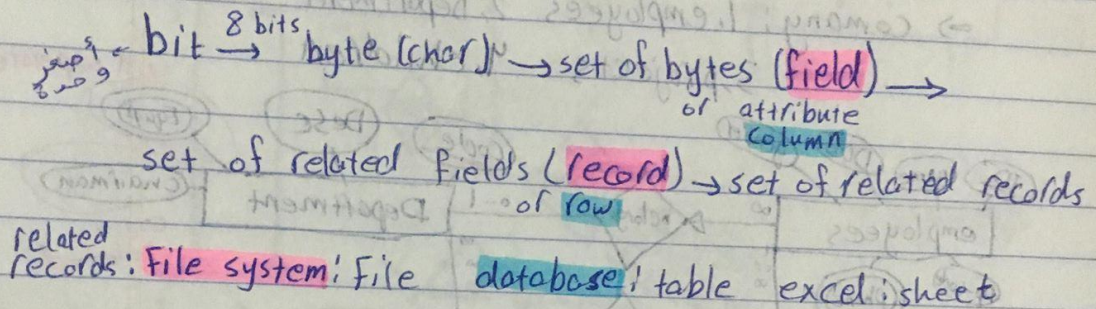 أصغر وحدة ← bit 8 bits → byte (char) → set of bytes (field) →
or attribute
column
set of related fields (record) → set of related records
or row
related
records: File system: File database: table excel: sheet